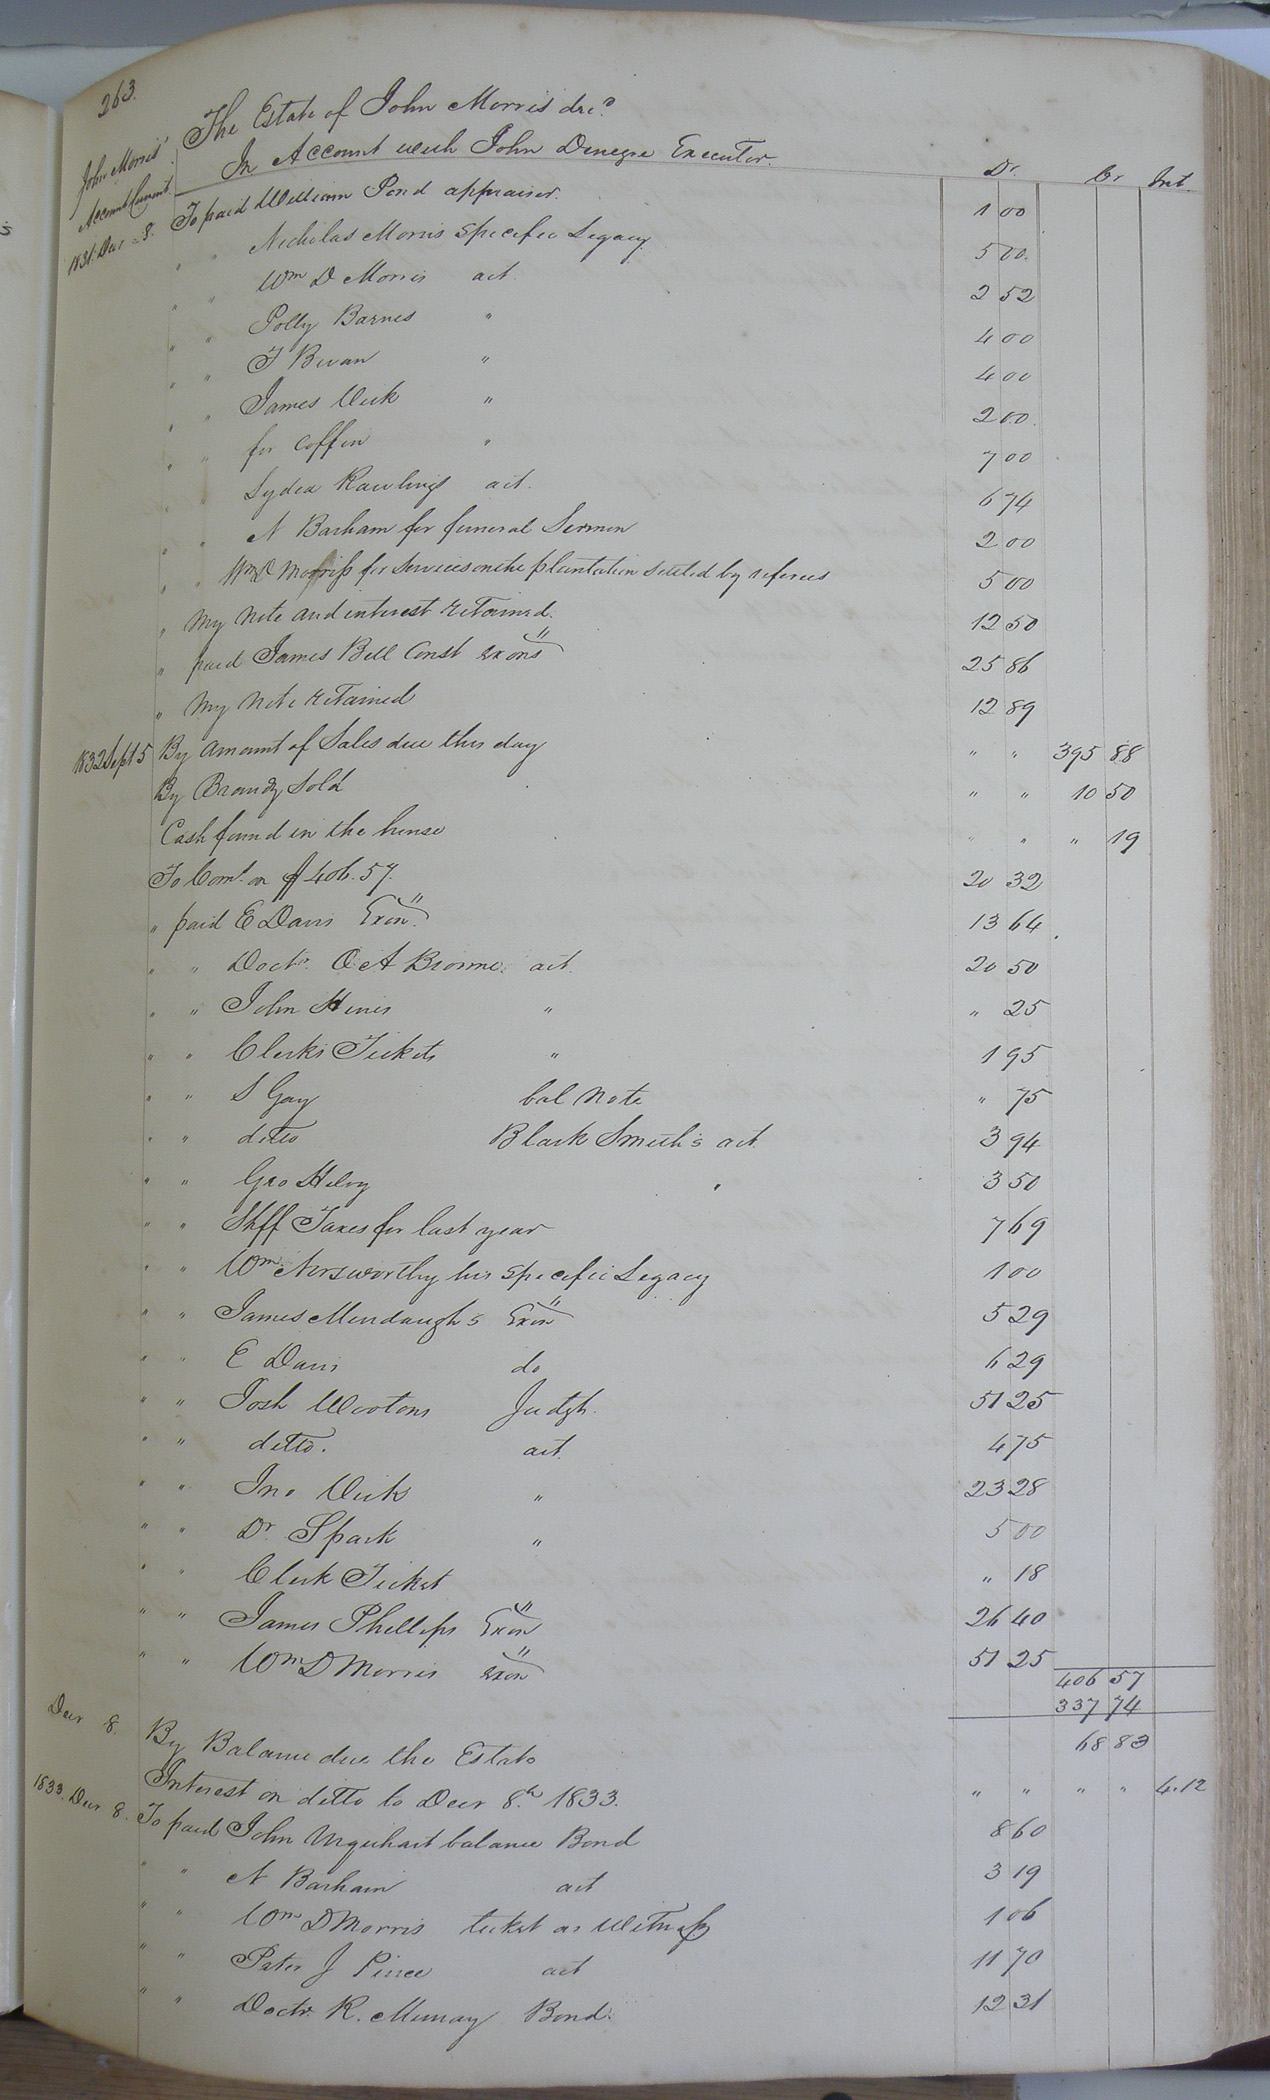 263.
The Estate of John Morris decd
In Account with John Denegre Executor. Dr. Cr Int.
John Morris'
Account Current.
1831 Decr 8. To paid William Pond appraiser. 1 00
" " Nicholas Morris Specific Legacy 5 00
" " Wm D Morris act. 2 52
" " Polly Barnes " 4 00
" " T Bevan " 4 00
" " James Vick " 2 00
" " for coffin " 7 00
" " Lydia Rawlings act. 6 74
" " N Barham for funeral Sermon 2 00
" " Wm D Morriss for Services on the plantation settled by referees 5 00
" My Note and interest retained. 12 50
" paid James Bell Const Exons 25 86
" My Note retained 12 89
1832 Sept 5 By Amount of Sales due this day " " 395 88
By Brandy Sold " " 10 50
Cash found in the house " " " 19
To Coms. on $406.57. 20 32
" paid E Davis Exon. 13 64
" " Doctr. O A Browne act. 20 50
" " John Hines " " 25
" " Clerks Tickets " 1 95
" " S Gay bal Note " 75
" " ditto Black Smith's act. 3 94
" " Geo Hilvy " 3 50
" " Shff Taxes for last year 7 69
" " Wm Norsworthy his Specific Legacy 1 00
" " James Mundaugh's Exon 5 29
" " E Davis do 6 29
" " Josh Wootons Judgt. 51 25
" " ditto. act. 4 75
" " Jno Vick " 23 28
" " Dr. Spark " 5 00
" " Clerk Ticket " 18
" " James Phillips Exon 26 40
" " Wm D Morris Exon 51 25
406 57
337 74
Decr 8. By Balance due the Estate 68 83
Interest on ditto to Decr 8.th 1833. " " " " 4.12
1833. Decr 8. To paid John Urquhart balance Bond 8 60
" " N Barham act 3 19
" " Wm D Morris ticket as Witness 1 06
" " Peter J Pince act 11 70
" " Doctr. R. Murray Bond. 12 31